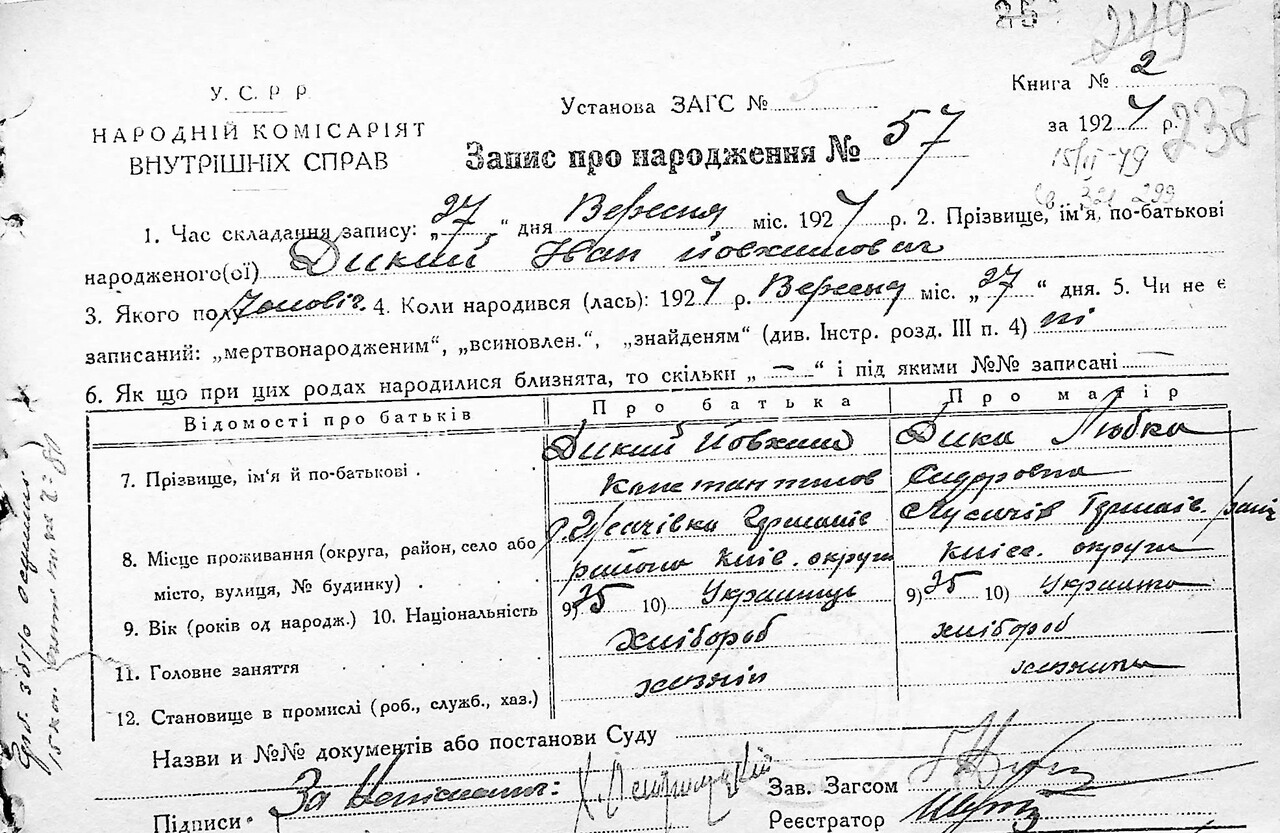 249
Книга № 2
У. С. Р Р.
Установа ЗАГС № 5
НАРОДНІЙ КОМІСАРІЯТ
за 1927 р.
237
ВНУТРІШНІХ СПРАВ
Запис про народження № 57
15/II-79
321 299
1. Час складання запису: „27“ дня Вересня міс. 1927 р. 2. Прізвище, ім'я, по-батькові
народженого(ої) Дикий Іван Йовхимович
3. Якого полу чоловіч. 4. Коли народився (лась): 1927 р. Вересня міс. „27“ дня. 5. Чи не є
записаний: „мертвонародженим“, „всиновлен.“, „знайденям“ (див. Інстр. розд. III п. 4) ні
6. Як що при цих родах народилися близнята, то скільки „ — “ і під якими №№ записані —
Відомості про батьків Про батька Про матір
7. Прізвище, ім'я й по-батькові . Дикий Йовхим Дика Любка
Константинов Сидоровна
8. Місце проживання (округа, район, село або місто, вулиця, № будинку) .
району Київ. округи округи
9. Вік (років од народж.) 10. Національність 9) 25 10) Українець 9) 25 10) Українка
11. Головне заняття . . . . хлібороб хлібороб
12. Становище в промислі (роб., служб., хаз.) хазяїн
Назви и №№ документів або постанови Суду
Підписи
Зав. Загсом
Реєстратор